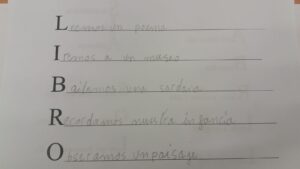 Leemos un poema
Iremos a un museo
Bailamos una sardana
Recordamos nuestra infancia
Observamos un paisaje